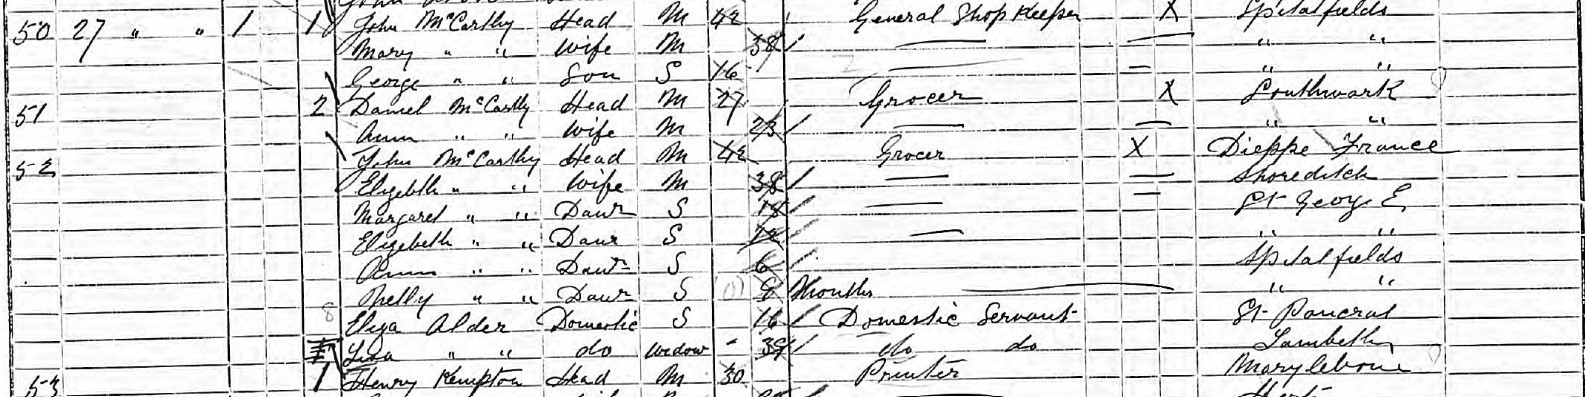 50 27 " " 1 1 John McCarthy Head M 42 General Shop Keeper X Spitalfields
Mary " " Wife M 38 " "
George " " Son S 16 " "
51 2 Daniel McCarthy Head M 27 Grocer X Southwark
Ann " " Wife M 23 " "
52 John McCarthy Head M 42 Grocer X Dieppe France
Elizebth " " Wife M 38 Shoreditch
Margaret " " Daur S 18 St Geoge E
Elizebeth " " Daur S " "
Ann " " Daur S 6 Spitalfields
Nelly " " Daur S 9 Months " "
Eliza Alder Domestic S 16 Domestic Servant St Pancras
" " do Widow - 39 do do Lambeth
53 Henry Kempton Head M 30 Printer Marylebone